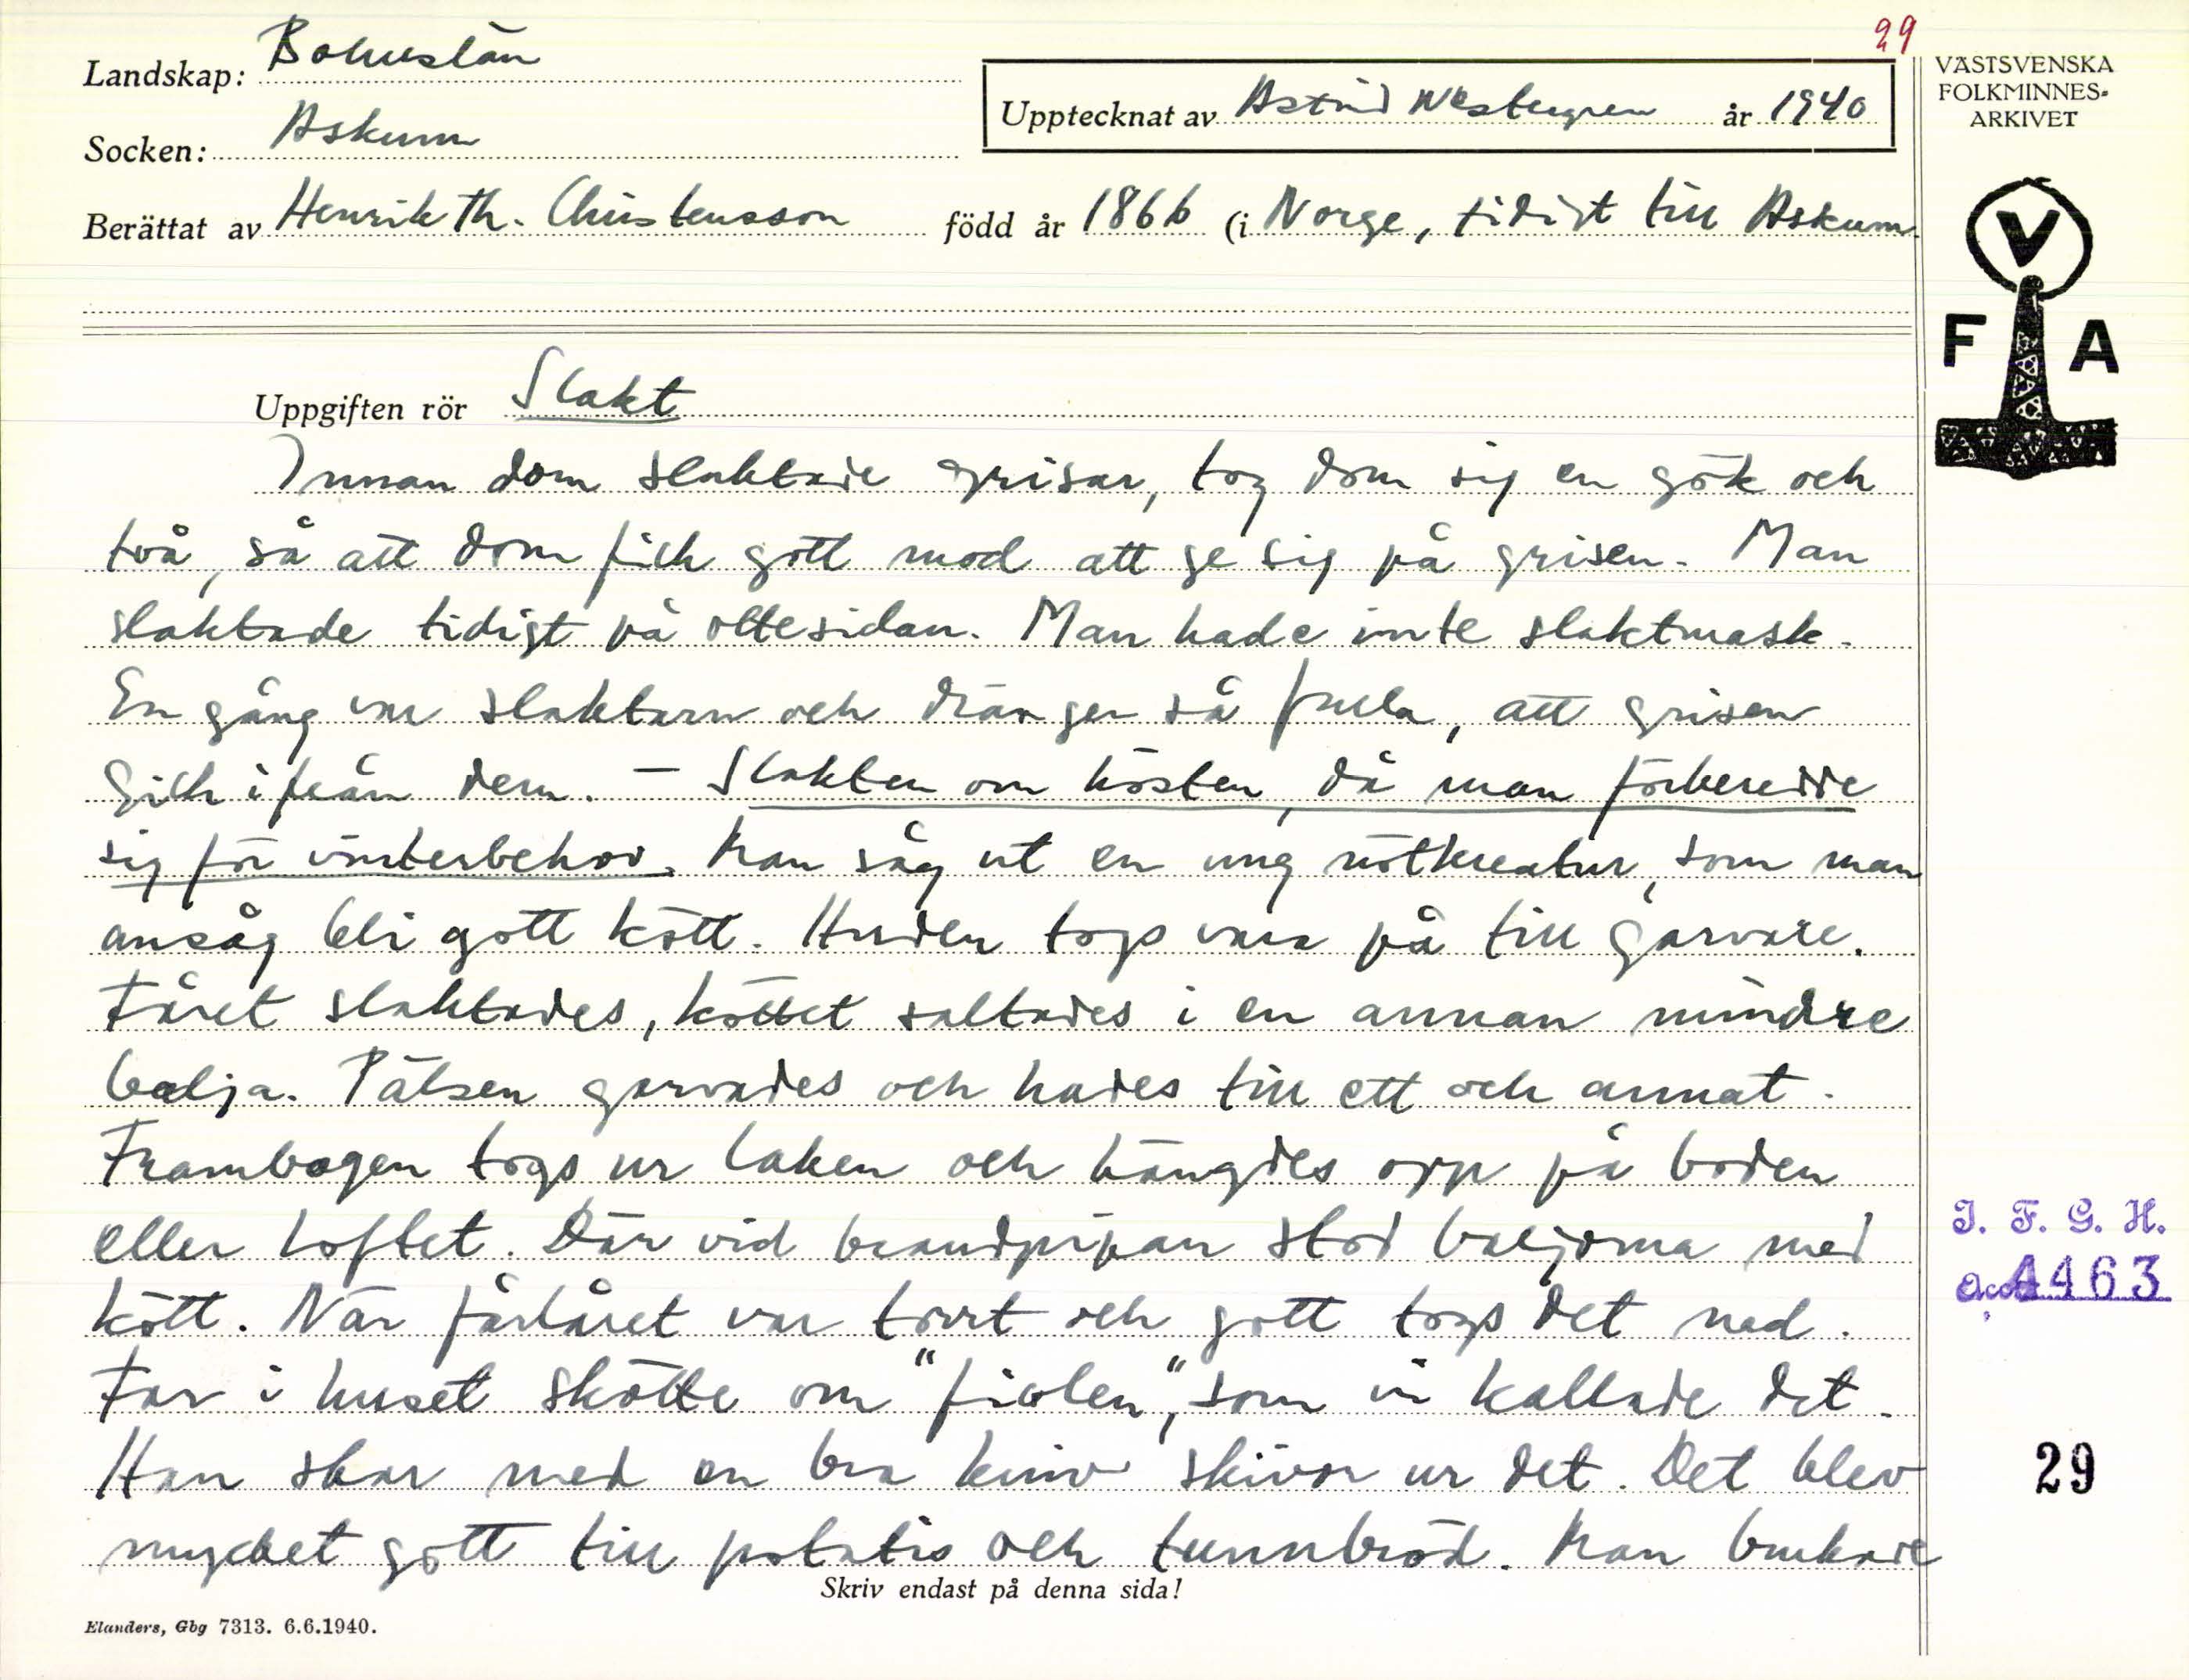 29
Landskap: Bohuslän
Socken: Askum
Upptecknat av Astrid Westergren år 1940
Berättat av Henrik Th. Christensson född år 1866 (i Norge, tidigt till Askum.
VÄSTSVENSKA
FOLKMINNES-
ARKIVET
V
F A
Uppgiften rör Slakt
Innan dom slaktade grisar, tog dom sig en gök och
två, så att dom fick gott mod att ge sig på grisen. Man
slaktade tidigt på ottesidan. Man hade inte slaktmask.
En gång var slaktarn och drängen så fulla, att grisen
gick ifrån dem. - Slakten om hösten, då man förberedde
sig för vinterbehov. Man såg ut en ung nötkreatur, som man
ansåg bli gott kött. Huden togs vara på till garvare.
Fåret slaktades, köttet saltades i en annan mindre
balja. Pälsen garvades och hades till ett och annat.
Frambogen togs ur laken och hängdes opp på boden
eller loftet. Där vid brandpipan stod baljorna med
kött. När fårlåret var torrt och gott togs det ned.
Far i huset skötte om "fiolen", som vi kallade det.
Han skar med en bra kniv skivor ur det. Det blev
mycket gott till potatis och tunnbröd. Man brukade
I. F. G. H.
Acc. 4463
29
Skriv endast på denna sida!
Elanders, Gbg 7313. 6.6.1940.